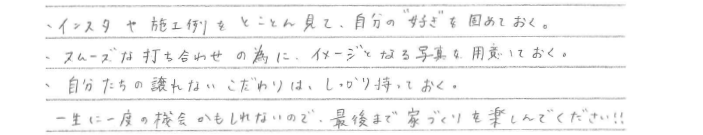 ・インスタや施工例をとことん見て、自分の"好き"を固めておく。
・スムーズな打ち合わせの為に、イメージとなる写真を用意しておく。
・自分たちの譲れないこだわりは、しっかり持っておく。
一生に一度の機会かもしれないので、最後まで家づくりを楽しんでください!!